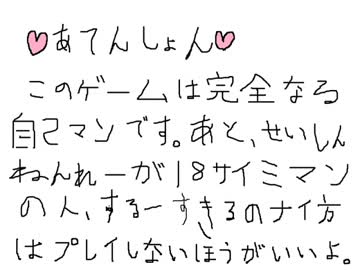 ♡あてんしょん♡
このゲームは完全なる
自己マンです。あと、せいしん
ねんれーが18サイミマン
の人、するーすきるのナイ方
はプレイしないほうがいいよ。